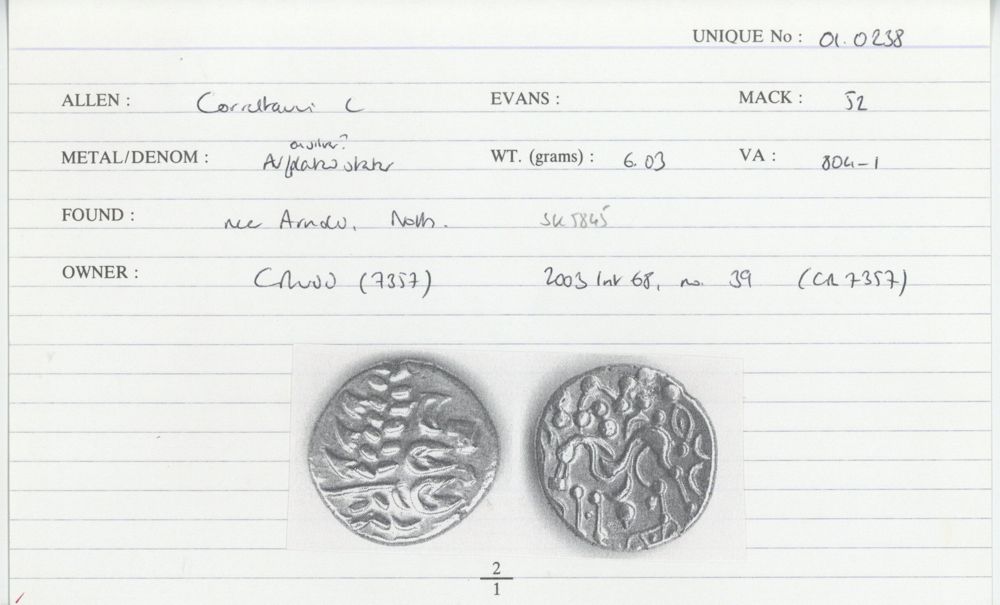 UNIQUE No : 01.0238
ALLEN : Corieltauvi C EVANS : MACK : 52
on silver?
METAL/DENOM : AV/plated stater WT. (grams) : 6.03 VA : 804-1
FOUND : near Arnold, Notts. SK 5845
OWNER : CRWOO (7357) 2003 List 68, no. 39 (CR 7357)
2
1